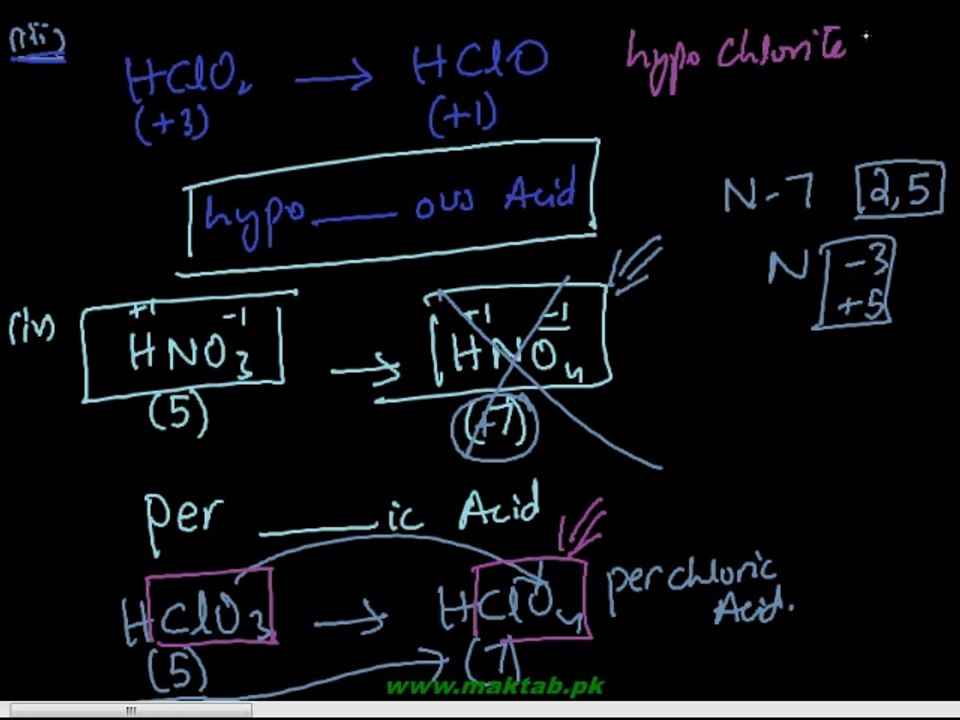 (iii)
HClO₂ → HClO hypochlorite
(+3) (+1)
hypo ____ ous Acid
N-7 2,5
N -3
+5
(iv) +1 -1 +1 -1
HNO₃ → HNO₄
(5) (+7)
per ____ ic Acid
HClO₃ → HClO₄ perchloric
Acid.
(5) (7)
www.maktab.pk